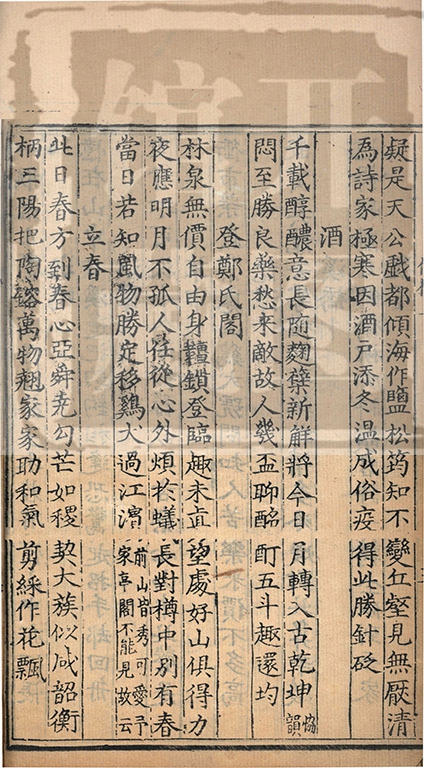 疑是天公戲都傾海作鹽松筠知不變丘壑見無厭清
為詩家極寒因酒戶添冬温成俗疫得此勝針砭
酒
千載醇醲意長随麴糵新鮮將今日月轉入古乾坤協韻
悶至勝良藥愁来敵故人幾盃聊酩酊五斗趣還均
登鄭氏閣
林泉無價自由身韁鎖登臨趣未直望處好山俱得力
夜應明月不孤人荏從心外煩於蟻長對樽中别有春
當日若知風物勝定移鷄犬過江濵前山皆秀可愛予家亭閣不能見故云
立春
此日春方到春心亞舜堯勾芒如稷契大蔟似咸韶衡
柄三陽把陶鎔萬物翹家家助和氣剪綵作花飄